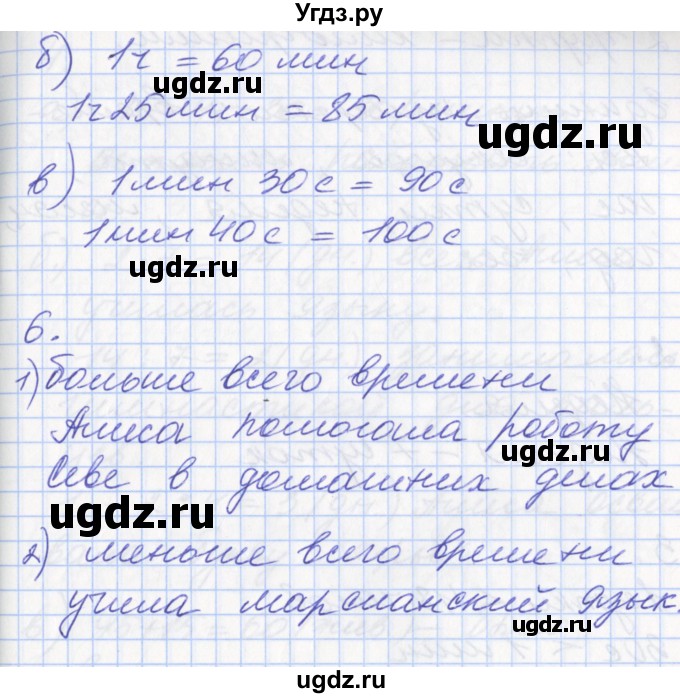 Угдз.ру
б) 1ч = 60 мин
ugdz.ru
1ч 25 мин = 85 мин
ugdz.ru
в) 1 мин 30 с = 90 с
1 мин 40 с = 100 с
ugdz.ru
6.
ugdz.ru
1) больше всего времени
Алиса помогала роботу
ugdz.ru
Севе в домашних делах
ugdz.ru
2) меньше всего времени
учила марсианский язык.
ugdz.ru
ugdz.ru